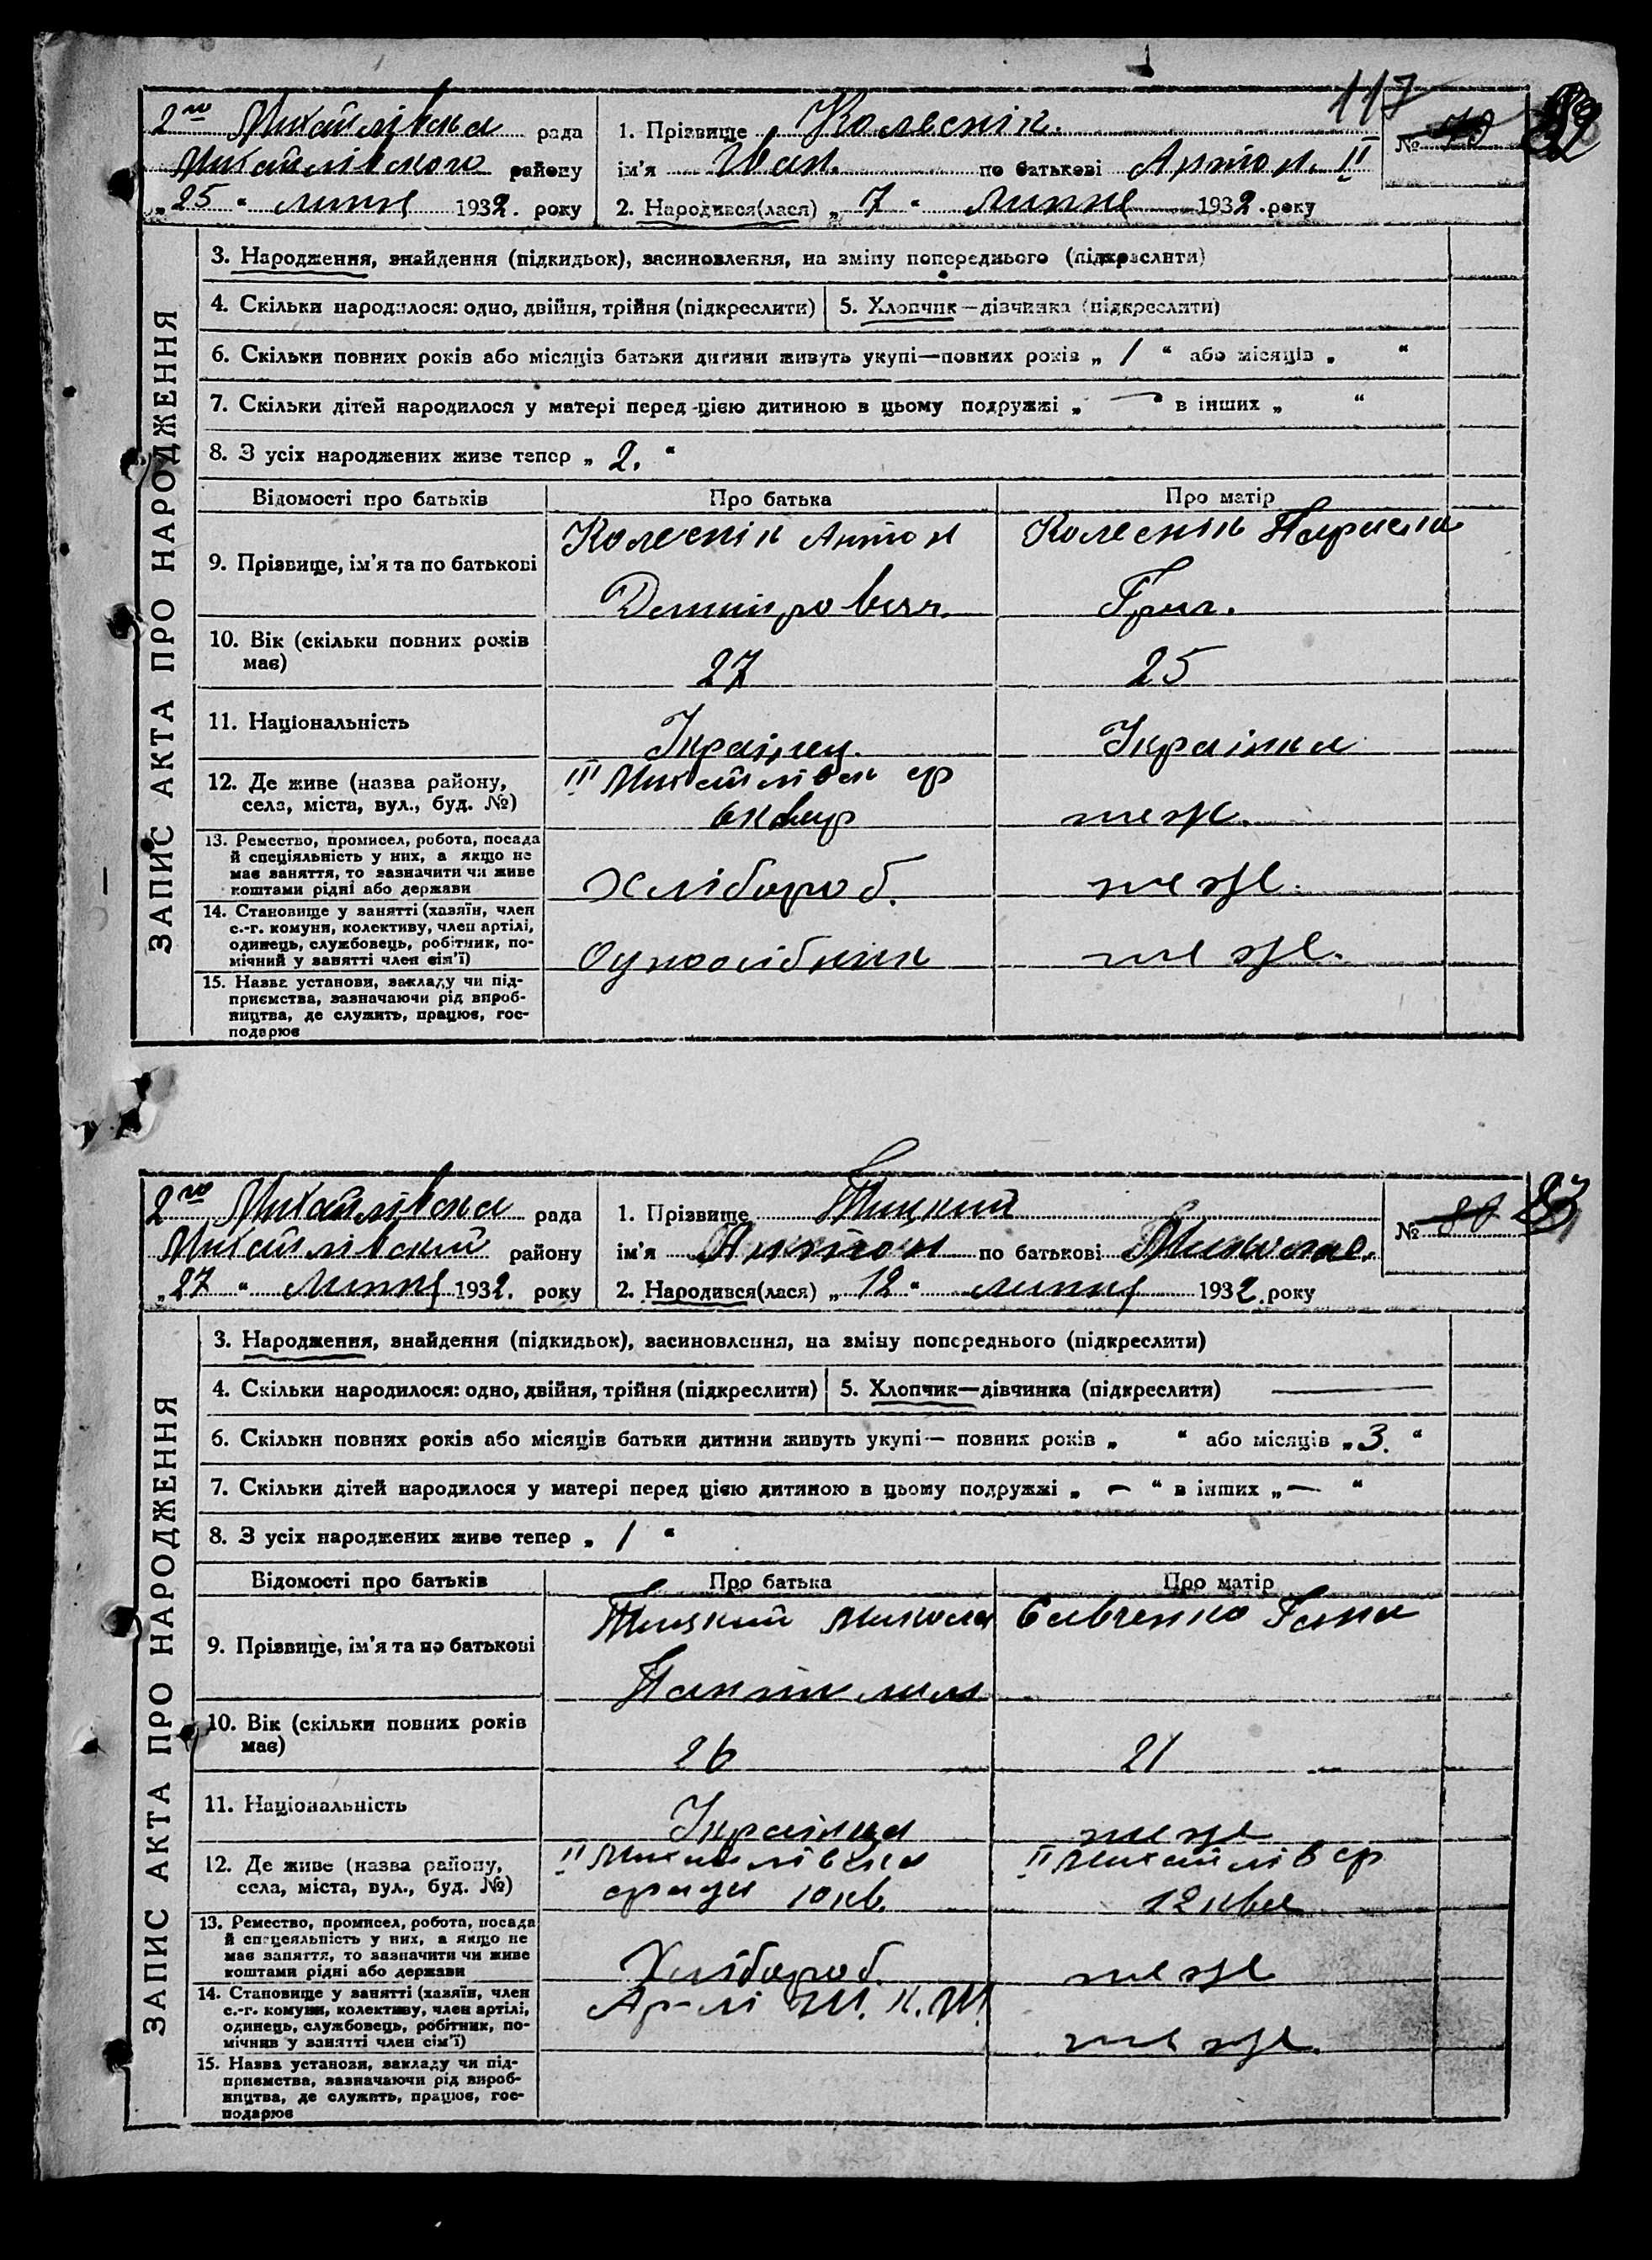 117
2го Михайлівська рада
Михайлівського району
„25“ липня 1932. року
1. Прізвище Колеснік.
ім'я Іван. по батькові Антон. II
2. Народився(лася) „7“ Липня 1932. року
№ 79
ЗАПИС АКТА ПРО НАРОДЖЕННЯ
3. Народження, знайдення (підкидьок), засиновлення, на зміну попереднього (підкреслити)
4. Скільки народилося: одно, двійня, трійня (підкреслити) 5. Хлопчик—дівчинка (підкреслити)
6. Скільки повних років або місяців батьки дитини живуть укупі—повних років „ 1 “ або місяців „ “
7. Скільки дітей народилося у матері перед цією дитиною в цьому подружжі „ — в інших „ “
8. З усіх народжених живе тепер „ 2. “
Відомості про батьків Про батька Про матір
9. Прізвище, ім'я та по батькові
Колеснік Антон Колеснік
Григ.
10. Вік (скільки повних років має)
27 25
11. Національність
Українец. Українка
12. Де живе (назва району, села, міста, вул., буд. №)
III Михайлівськ ср
теж.
13. Ремество, промисел, робота, посада
й спеціяльність у них, а якщо не
має заняття, то зазначити чи живе
коштами рідні або держави
Хлібороб. теж.
14. Становище у занятті (хазяїн, член
с.-г. комуни, колективу, член артілі,
одинець, службовець, робітник, по-
мічний у занятті член сім'ї)
Одноосібник теж.
15. Назва установи, закладу чи під-
приємства, зазначаючи рід вироб-
ництва, де служить, працює, гос-
подарює
2го Михайлівська рада
Михайлівський району
„27“ Липня 1932. року
1. Прізвище Тицкий
ім'я Антон по батькові Миколає.
2. Народився(лася) „12“ липня 1932. року
№ 80 83
ЗАПИС АКТА ПРО НАРОДЖЕННЯ
3. Народження, знайдення (підкидьок), засиновлення, на зміну попереднього (підкреслити)
4. Скільки народилося: одно, двійня, трійня (підкреслити) 5. Хлопчик—дівчинка (підкреслити)
6. Скільки повних років або місяців батьки дитини живуть укупі— повних років „ “ або місяців „3. “
7. Скільки дітей народилося у матері перед цією дитиною в цьому подружжі „ — “ в інших „ — “
8. З усіх народжених живе тепер „ 1 “
Відомості про батьків Про батька Про матір
9. Прізвище, ім'я та по батькові
Тицкий Микола Савченко Ганна
10. Вік (скільки повних років має)
26 21
11. Національність
Українца теж
12. Де живе (назва району, села, міста, вул., буд. №)
II Михайлівська II Михайлів ср
сради 10 кв. 12 ква
13. Ремество, промисел, робота, посада
й спецеяльність у них, а якщо не
має заняття, то зазначити чи живе
коштами рідні або держави
Хлібороб. теж
14. Становище у занятті (хазяїн, член
с.-г. комуни, колективу, член артілі,
одинець, службовець, робітник, по-
мічнив у занятті член сім'ї)
теж.
15. Назва установи, закладу чи під-
приємства, зазначаючи рід вироб-
ництва, де служить, працює, гос-
подарює